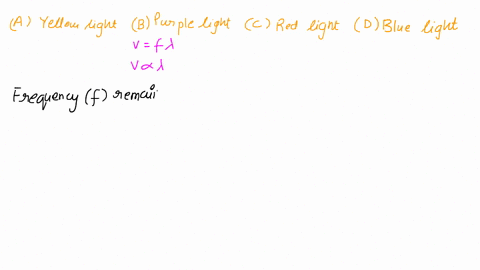 (A) Yellow light (B) Purple light (C) Red light (D) Blue light
v = fλ
v ∝ λ
Frequency (f) remai